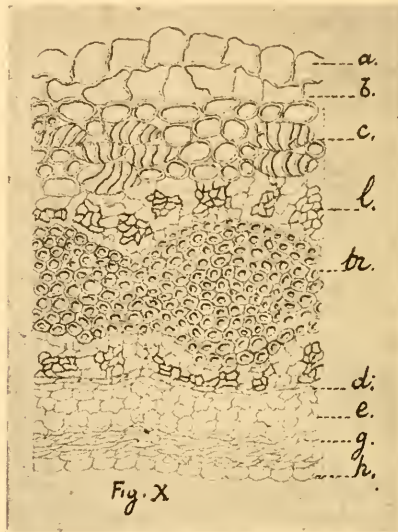 a.
b.
c.
l.
br.
d.
e.
g.
h.
Fig. X